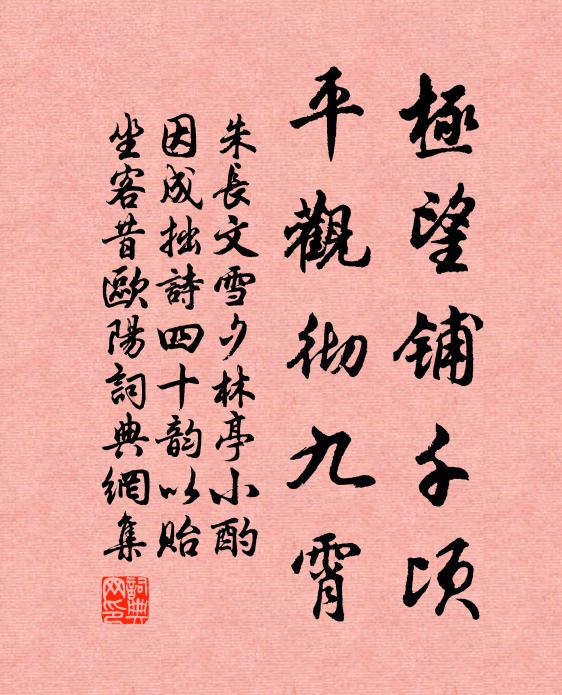 極望鋪千頃
平觀彻九霄
朱長文雪夕林亭小酌
因成拙詩四十韵以貽
坐客昔歐陽詞典網集
詞典
网印